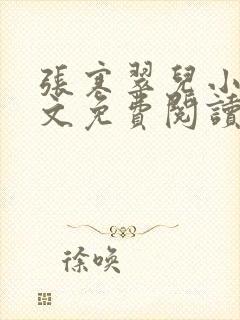 張寒翠兒小
文免費閱讀
徐喚